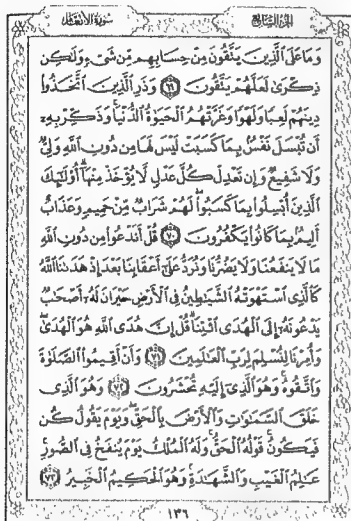 الجزء السابع سورة الأنعام
وَمَا عَلَى الَّذِينَ يَتَّقُونَ مِنْ حِسَابِهِم مِّن شَيْءٍ وَلَٰكِن
ذِكْرَىٰ لَعَلَّهُمْ يَتَّقُونَ ٦٩ وَذَرِ الَّذِينَ اتَّخَذُوا
دِينَهُمْ لَعِبًا وَلَهْوًا وَغَرَّتْهُمُ الْحَيَوٰةُ الدُّنْيَا وَذَكِّرْ بِهِ
أَن تُبْسَلَ نَفْسٌ بِمَا كَسَبَتْ لَيْسَ لَهَا مِن دُونِ اللَّهِ وَلِيٌّ
وَلَا شَفِيعٌ وَإِن تَعْدِلْ كُلَّ عَدْلٍ لَّا يُؤْخَذْ مِنْهَا أُولَٰئِكَ
الَّذِينَ أُبْسِلُوا بِمَا كَسَبُوا لَهُمْ شَرَابٌ مِّنْ حَمِيمٍ وَعَذَابٌ
أَلِيمٌ بِمَا كَانُوا يَكْفُرُونَ ٧٠ قُلْ أَنَدْعُوا مِن دُونِ اللَّهِ
مَا لَا يَنفَعُنَا وَلَا يَضُرُّنَا وَنُرَدُّ عَلَىٰ أَعْقَابِنَا بَعْدَ إِذْ هَدَىٰنَا اللَّهُ
كَالَّذِي اسْتَهْوَتْهُ الشَّيَٰطِينُ فِي الْأَرْضِ حَيْرَانَ لَهُ أَصْحَٰبٌ
يَدْعُونَهُ إِلَى الْهُدَى ائْتِنَا قُلْ إِنَّ هُدَى اللَّهِ هُوَ الْهُدَىٰ
وَأُمِرْنَا لِنُسْلِمَ لِرَبِّ الْعَٰلَمِينَ ٧١ وَأَنْ أَقِيمُوا الصَّلَوٰةَ
وَاتَّقُوهُ وَهُوَ الَّذِي إِلَيْهِ تُحْشَرُونَ ٧٢ وَهُوَ الَّذِي
خَلَقَ السَّمَٰوَٰتِ وَالْأَرْضَ بِالْحَقِّ وَيَوْمَ يَقُولُ كُن
فَيَكُونُ قَوْلُهُ الْحَقُّ وَلَهُ الْمُلْكُ يَوْمَ يُنفَخُ فِي الصُّورِ
عَٰلِمُ الْغَيْبِ وَالشَّهَٰدَةِ وَهُوَ الْحَكِيمُ الْخَبِيرُ ٧٣
١٣٦